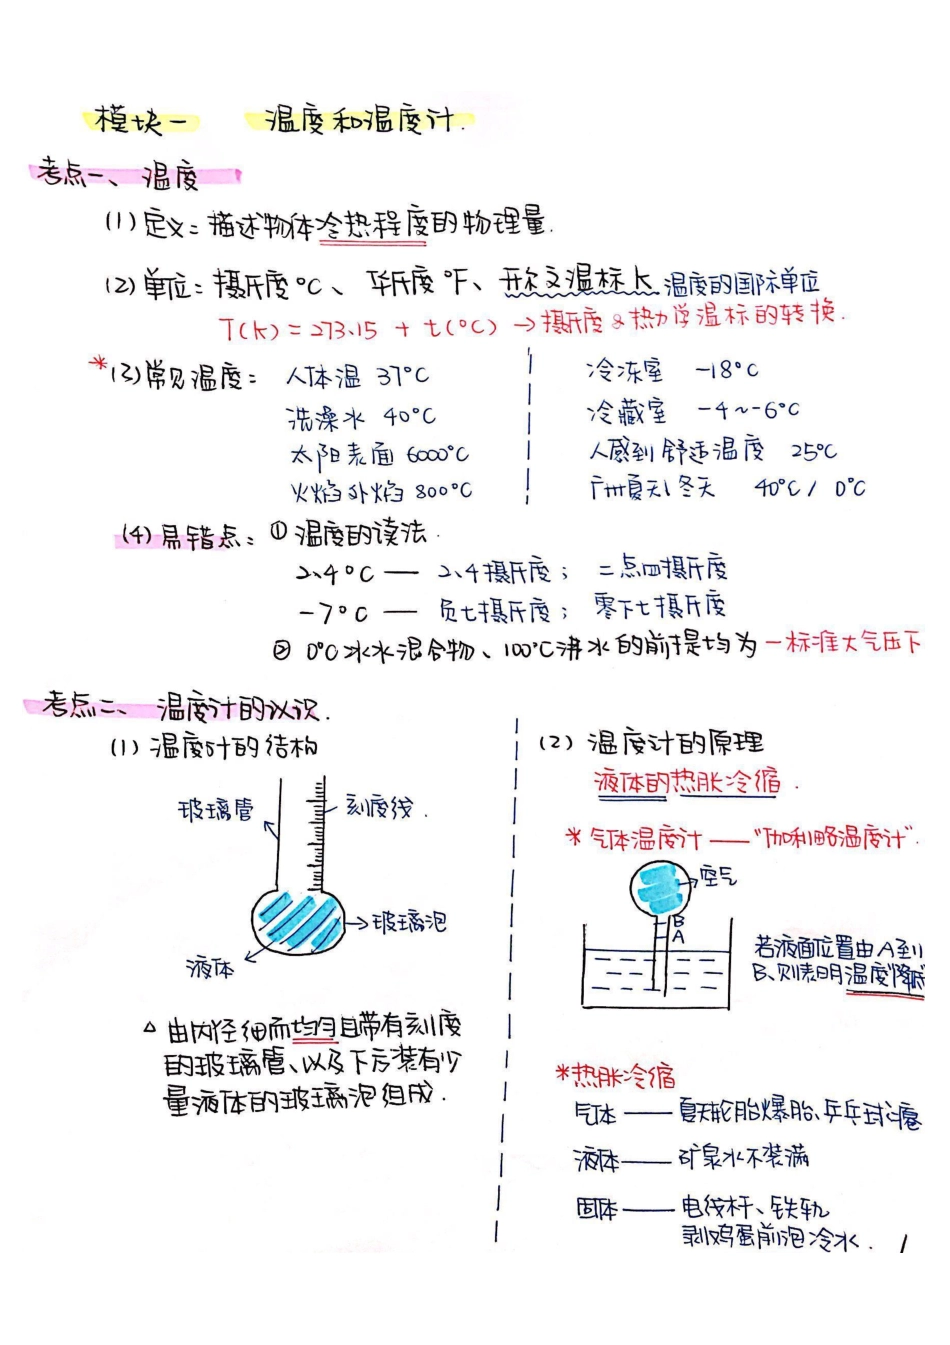 模块一 温度和温度计.
考点一、温度
(1)定义:描述物体冷热程度的物理量.
(2)单位:摄氏度℃、华氏度℉、开尔文温标k.温度的国际单位
T(k)=273.15+t(℃)→摄氏度&热力学温标的转换.
*(3)常见温度: 人体温 37℃ 冷冻室 -18℃
洗澡水 40℃ 冷藏室 -4~-6℃
太阳表面 6000℃ 人感到舒适温度 25℃
火焰外焰 800℃ 广州夏天\冬天 40℃/0℃
(4)易错点:①温度的读法.
2、4℃——2、4摄氏度; 二点四摄氏度
-7℃——负七摄氏度; 零下七摄氏度
②0℃冰水混合物、100℃沸水的前提均为一标准大气压下
考点二、温度计的认识.
(1)温度计的结构
玻璃管
刻度线.
玻璃泡
液体
△由内径细而均匀且带有刻度
的玻璃管、以及下方装有少
量液体的玻璃泡组成.
(2)温度计的原理
液体的热胀冷缩.
*气体温度计——"伽利略温度计".
空气
B
A
若液面位置由A到
B、则表明温度降低
*热胀冷缩
气体——夏天轮胎爆胎、乒乓球瘪
液体——矿泉水不装满
固体——电线杆、铁轨
剥鸡蛋前泡冷水.
1